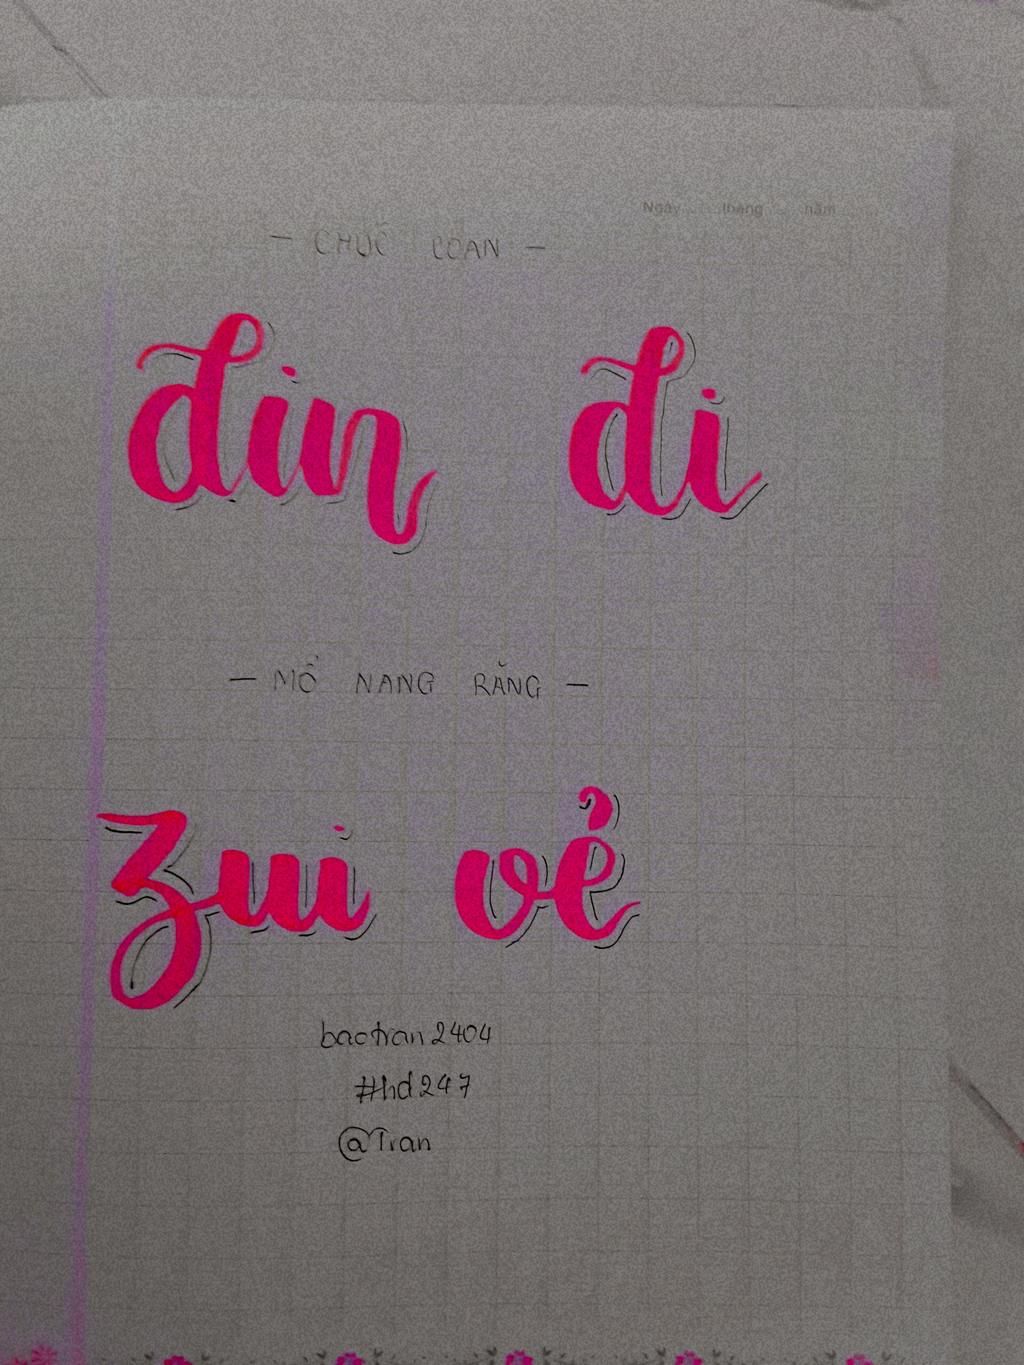 Ngày tháng năm
- CHÚC LOAN -
đin đi
- MỔ NANG RĂNG -
zui vẻ
baotran2404
#hd247
@Tran